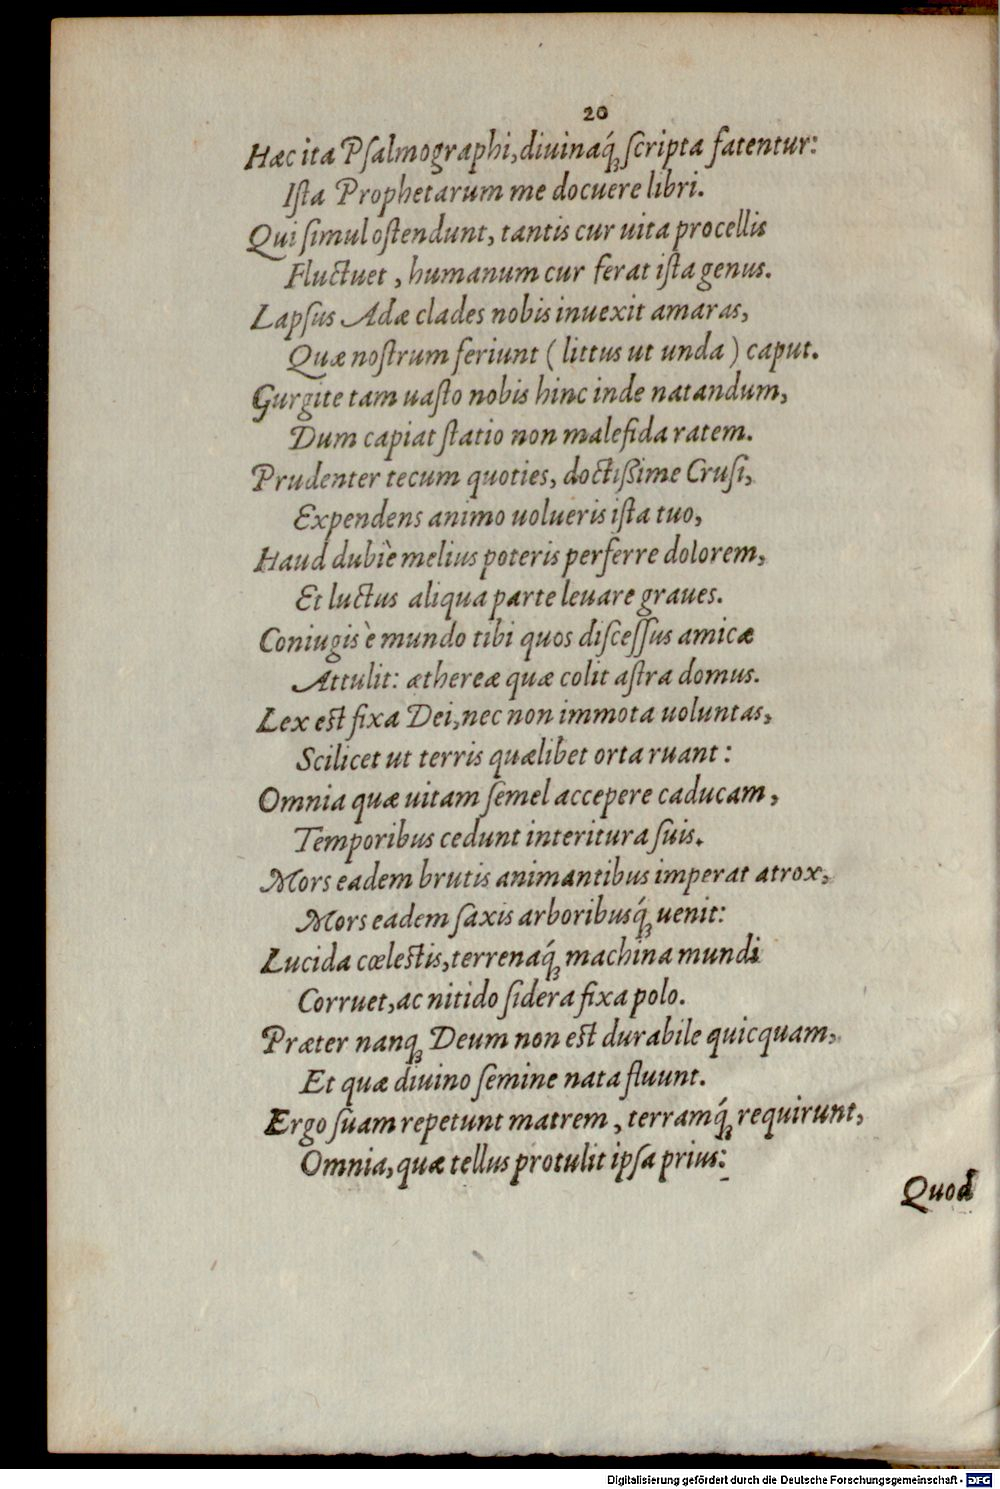 20
Hæc ita Pſalmographi, diuinaq́; ſcripta fatentur:
Iſta Prophetarum me docuere libri.
Qui ſimul oſtendunt, tantis cur uita procellis
Fluctuet, humanum cur ferat iſta genus.
Lapſus Adæ clades nobis inuexit amaras,
Quæ noſtrum feriunt (littus ut unda) caput.
Gurgite tam uaſto nobis hinc inde natandum,
Dum capiat ſtatio non malefida ratem.
Prudenter tecum quoties, doctißime Cruſi,
Expendens animo uolueris iſta tuo,
Haud dubiè melius poteris perferre dolorem,
Et luctus aliqua parte leuare graues.
Coniugis è mundo tibi quos diſceſſus amicæ
Attulit: æthereæ quæ colit aſtra domus.
Lex eſt fixa Dei, nec non immota uoluntas,
Scilicet ut terris quælibet orta ruant:
Omnia quæ uitam ſemel accepere caducam,
Temporibus cedunt interitura ſuis.
Mors eadem brutis animantibus imperat atrox,
Mors eadem ſaxis arboribusq́; uenit:
Lucida cœleſtis, terrenaq́; machina mundi
Corruet, ac nitido ſidera fixa polo.
Præter nanq; Deum non eſt durabile quicquam,
Et quæ diuino ſemine nata fluunt.
Ergo ſuam repetunt matrem, terramq́; requirunt,
Omnia, quæ tellus protulit ipſa prius:
Quod
Digitalisierung gefördert durch die Deutsche Forschungsgemeinschaft - DFG